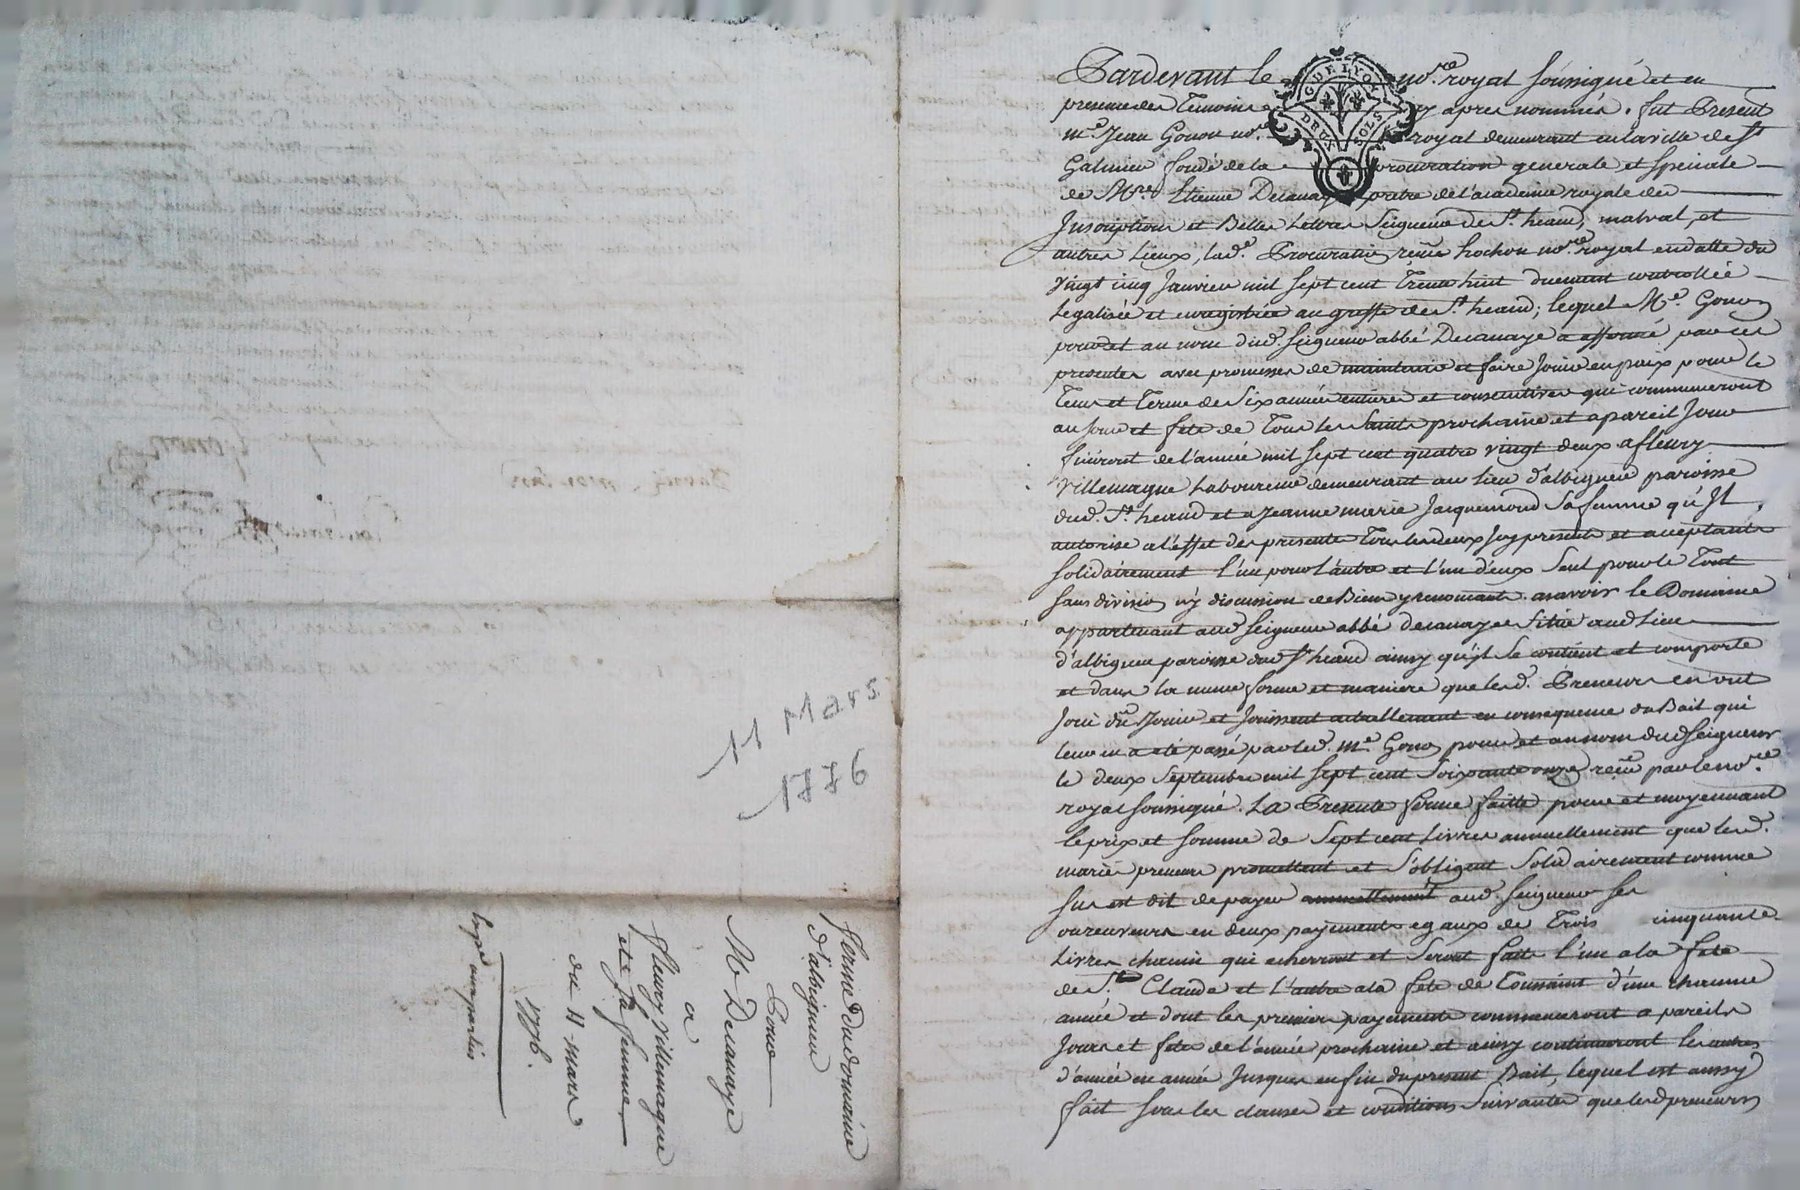 11 Mars
1776
ferme du domaine
d'albigneu
Pour
Mr Decanaye
a
fleury villemagne
et sa femme
du 11 mars
1776.
GDE LYON
DEUX SOLS
Pardevant le no.re royal soussigné et en
presence des Temoins cy apres nommés. fut Present
me Jean Gonon no.re royal demeurant en la ville de St
Galmier fondé de la procuration generale et speciale
de Mre Etienne Decanaye pretre de l'academie royale des
Inscriptions et Belles Lettres Seigneur de St heand, malval, et
autres Lieux, lad.e Procuration reçüe hochon nore royal en datte du
vingt cinq Janvier mil sept cent Trente huit duement controllée
Legalisée et enregistrée au greffe de St heand; lequel Me. Gonon
pour et au nom dud. seigneur abbé Decanaye a affermé par ces
presentes avec promesses de maintenir et faire Jouir en paix pour le
Tems et Terme de Six années entieres et consecutives qui commenceront
au Jour et fete de Tous les Saints prochaine et a pareil Jour
finiront de l'année mil sept cent quatre vingt deux a fleury
villemagne Laboureur demeurant au lieu d'albigneu paroisse
dud. St. heand et a Jeanne marie Jacquemond Sa femme qu'Il
autorise a l'effet des presentes Tous les deux Icy presents et acceptants
solidairement l'un pour l'autre et l'un d'eux Seul pour le Tout
sans division n'y discussion de Biens y renonçants. asavoir le Domaine
appartenant aud. seigneur abbé decanaye Situé aud. Lieu
d'albigneu paroisse dud. St heand ainsy qu'jl se contient et comporte
et dans la meme forme et maniere que lesd. Preneurs en ont
Joui dû Jouir et Jouissent actuellement en consequence du Bail qui
leur en a eté passé par led. me Gonon pour et au nom dud. seigneur
le deux Septembre mil sept cent Soixante onze reçu par le nore
royal soussigné. La Presente ferme faitte pour et moyennant
le prix et somme de Sept cent Livres annuellement que lesd.
mariés preneurs promettent et s'obligent Solidairement comme
sus est dit de payer annuellement aud. seigneur ses
ou receveurs en deux payements egaux de Trois cinquante
Livres chacun qui echerront et Seront faits l'un a la fete
de St Claude et l'autre a la fete de Toussaint d'une chacune
année et dont les premiers payements commenceront a pareils
Jours et fetes de l'année prochaine et ainsy continueront les autres
d'année en année Jusques en fin du present Bail, lequel est aussy
fait sous les clauses et conditions Suivantes que lesd. preneurs